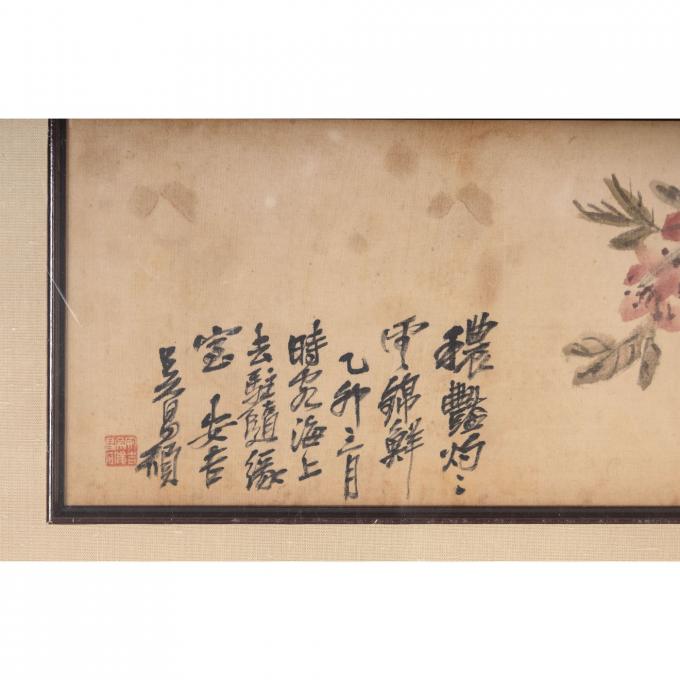 穠豔灼〻
雲錦鮮
乙卯三月
時客海上
去駐隨緣
室 安吉
吳昌碩